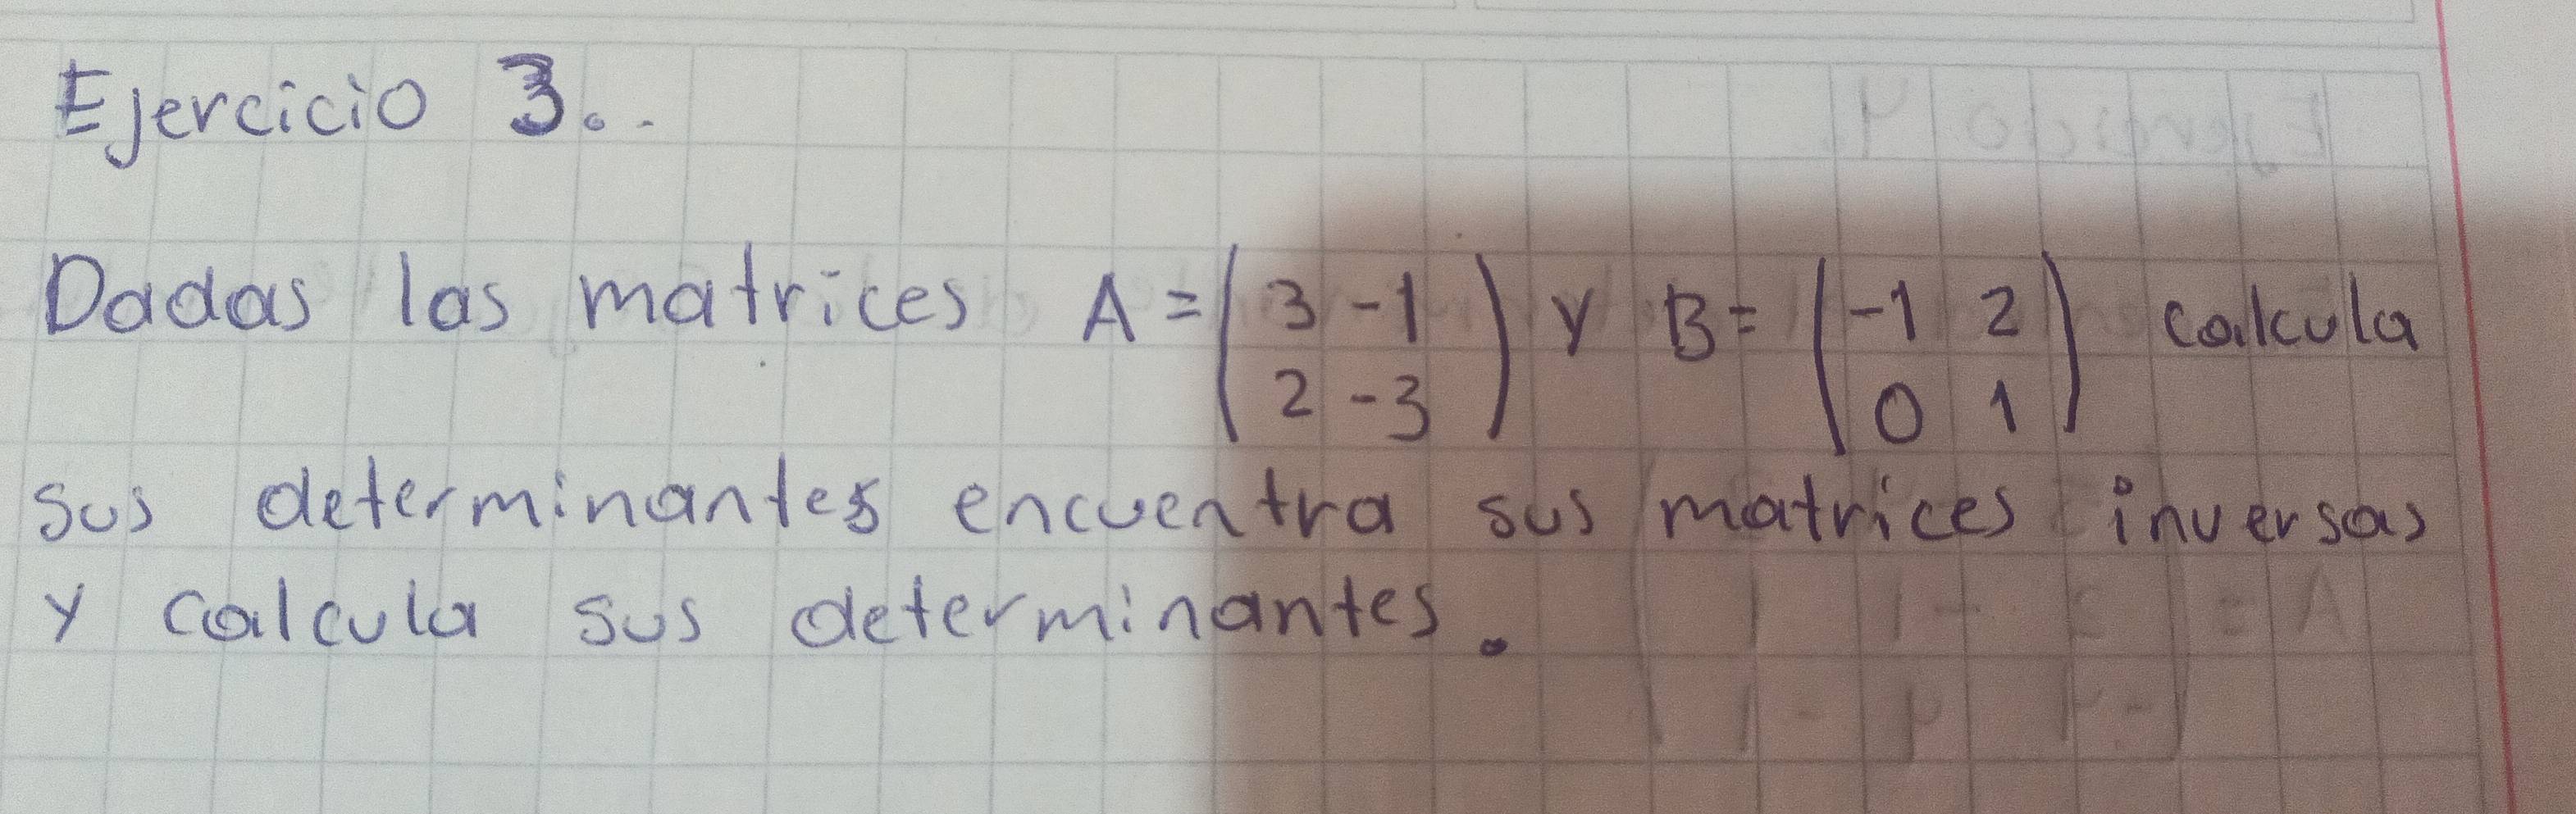 Ejercicio 3..
Dadas las matrices A = ( 3 -1 ) y B = ( -1 2 ) calcula
2 -3 0 1
sus determinantes encuentra sus matrices inversas
y calcula sus determinantes.